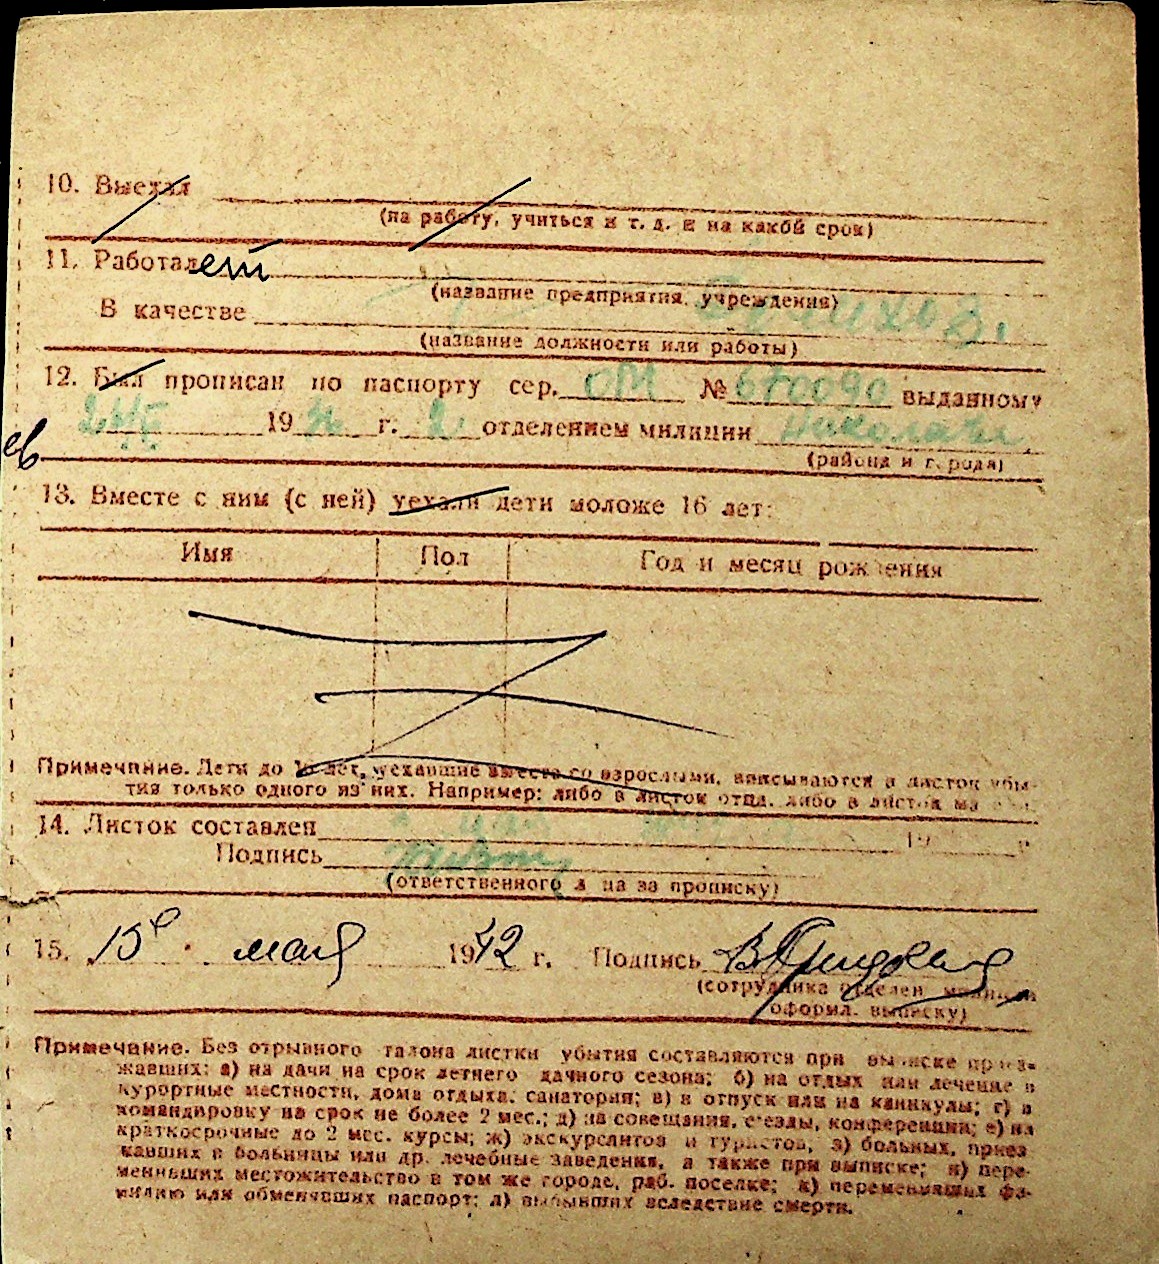 10. Выехал
(на работу, учиться и т. д. и на какой срок)
11. Работает
(название предприятия, учреждения)
В качестве
(название должности или работы)
12. Был прописан по паспорту сер. ОМ № 670090 выданному
19 г. 2 отделением милиции Николаев
ев
(района и города)
13. Вместе с ним (с ней) уехали дети моложе 16 лет:
Имя Пол Год и месяц рождения
Примечание. Дети до 16 лет, уехавшие вместе со взрослыми, вписываются в листок убы-
тия только одного из них. Например: либо в листок отца, либо в листок ма
14. Листок составлен 19 г.
Подпись
(ответственного лица за прописку)
15. 15 мая 1942 г. Подпись
(сотрудника отделен. милиции
оформл. выписку)
Примечание. Без отрывного талона листки убытия составляются при выписке приез-
жавших: а) на дачи на срок летнего дачного сезона; б) на отдых или лечение в
курортные местности, дома отдыха, санатории; в) в отпуск или на каникулы; г) в
командировку на срок не более 2 мес.; д) на совещания, съезды, конференции; е) на
краткосрочные до 2 мес. курсы; ж) экскурсантов и туристов, з) больных, приез
жавших в больницы или др. лечебные заведения, а также при выписке; и) пере-
менивших местожительство в том же городе, раб. поселке; к) переменивших фа-
милию или обменявших паспорт; л) выбывших вследствие смерти.